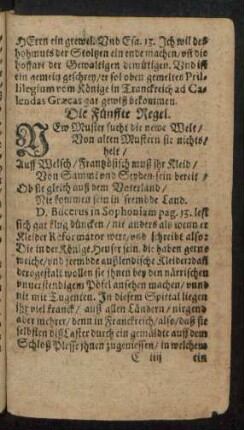 HErrn ein grewel. Vnd Esa. 13. Jch wil des
hohmuts der Stoltzen ein ende machen / vñ die
hoffart der Gewaltigen demütigen. Vnd ist
ein gemein geschrey / er sol oben gemelter Pri-
lilegium vom Könige in Franckreich ad Ca-
lendas Græcas gar gewiß bekommen.
Die Fünffte Regel.
NEw Muster sucht die newe Welt /
Von alten Mustern sie nichts
helt /
Auff Welsch / Frantzösisch muß jhr Kleid /
Von Sammt vnd Seyden sein bereit /
Ob sie gleich auß dem Vaterland /
Nie kommen sein in frembde Land.
D. Bucerus in Sophoniam pag. 13. lest
sich gar klug düncken / nie anders als wenn er
Kleider Reformator wer / vnd schreibt also:
Die in der König Heuser sein die haben gern
weiche / vnd frembde außlendische Kleider / daß
dergestalt wollen sie jhnen bey den närrischen
vnverstendigem Pöfel ansehen machen / vnnd
nit mit Tugenten. In diesem Spittal liegen
jhr viel kranck / auß allen Ländern / nirgend
aber mehrer / denn in Franckreich / also / daß sie
selbsten diß Laster durch ein gemälte auff dem
Schloß Plesse jhnen zugeniessen / in welchem
C iiij ein